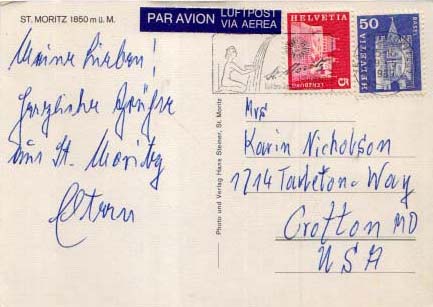 ST. MORITZ 1850 m ü. M.
PAR AVION
LUFTPOST
VIA AEREA
HELVETIA
LENZBURG
5
50
HELVETIA
BASEL
Meine Lieben!
Herzliche Grüsse
aus St. Moritz
Eltern
Photo und Verlag Hans Steiner, St. Moritz
Mrs
Karin Nicholson
1714 Tarleton-Way
Crofton MD
USA